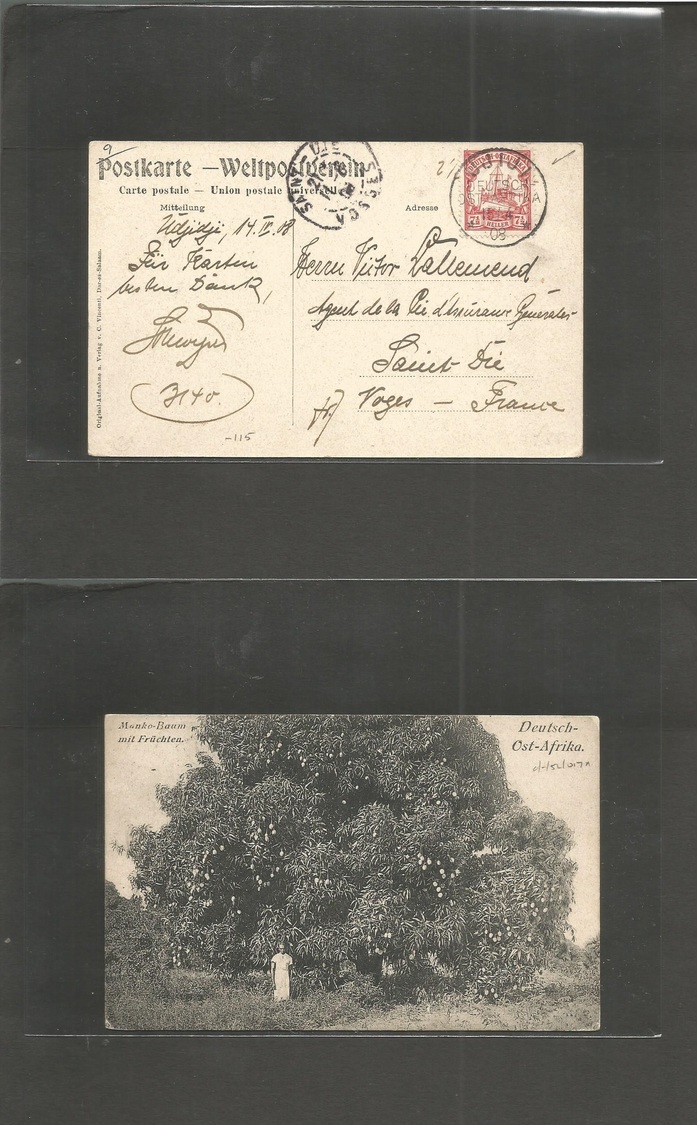 9
Postkarte — Weltpostverein
Carte postale — Union postale universelle
Mitteilung
Adresse
Udjidji, 14.IV.08
Für Karten
besten Dank,
3140.
-115
Original-Aufnahme u. Verlag v. C. Vincent, Dar-es-Salaam.
SAINT-DIÉ
VOSGES
DEUTSCH-OSTAFRIKA
7½ 7½
HELLER
UDJIDJI
DEUTSCH-
OSTAFRIKA
08
Herrn Victor Lallemend
Agent de la Cie d'Assurance Générales
Saint Dié
Voges — France
Manko-Baum
mit Früchten.
Deutsch-
Ost-Afrika.